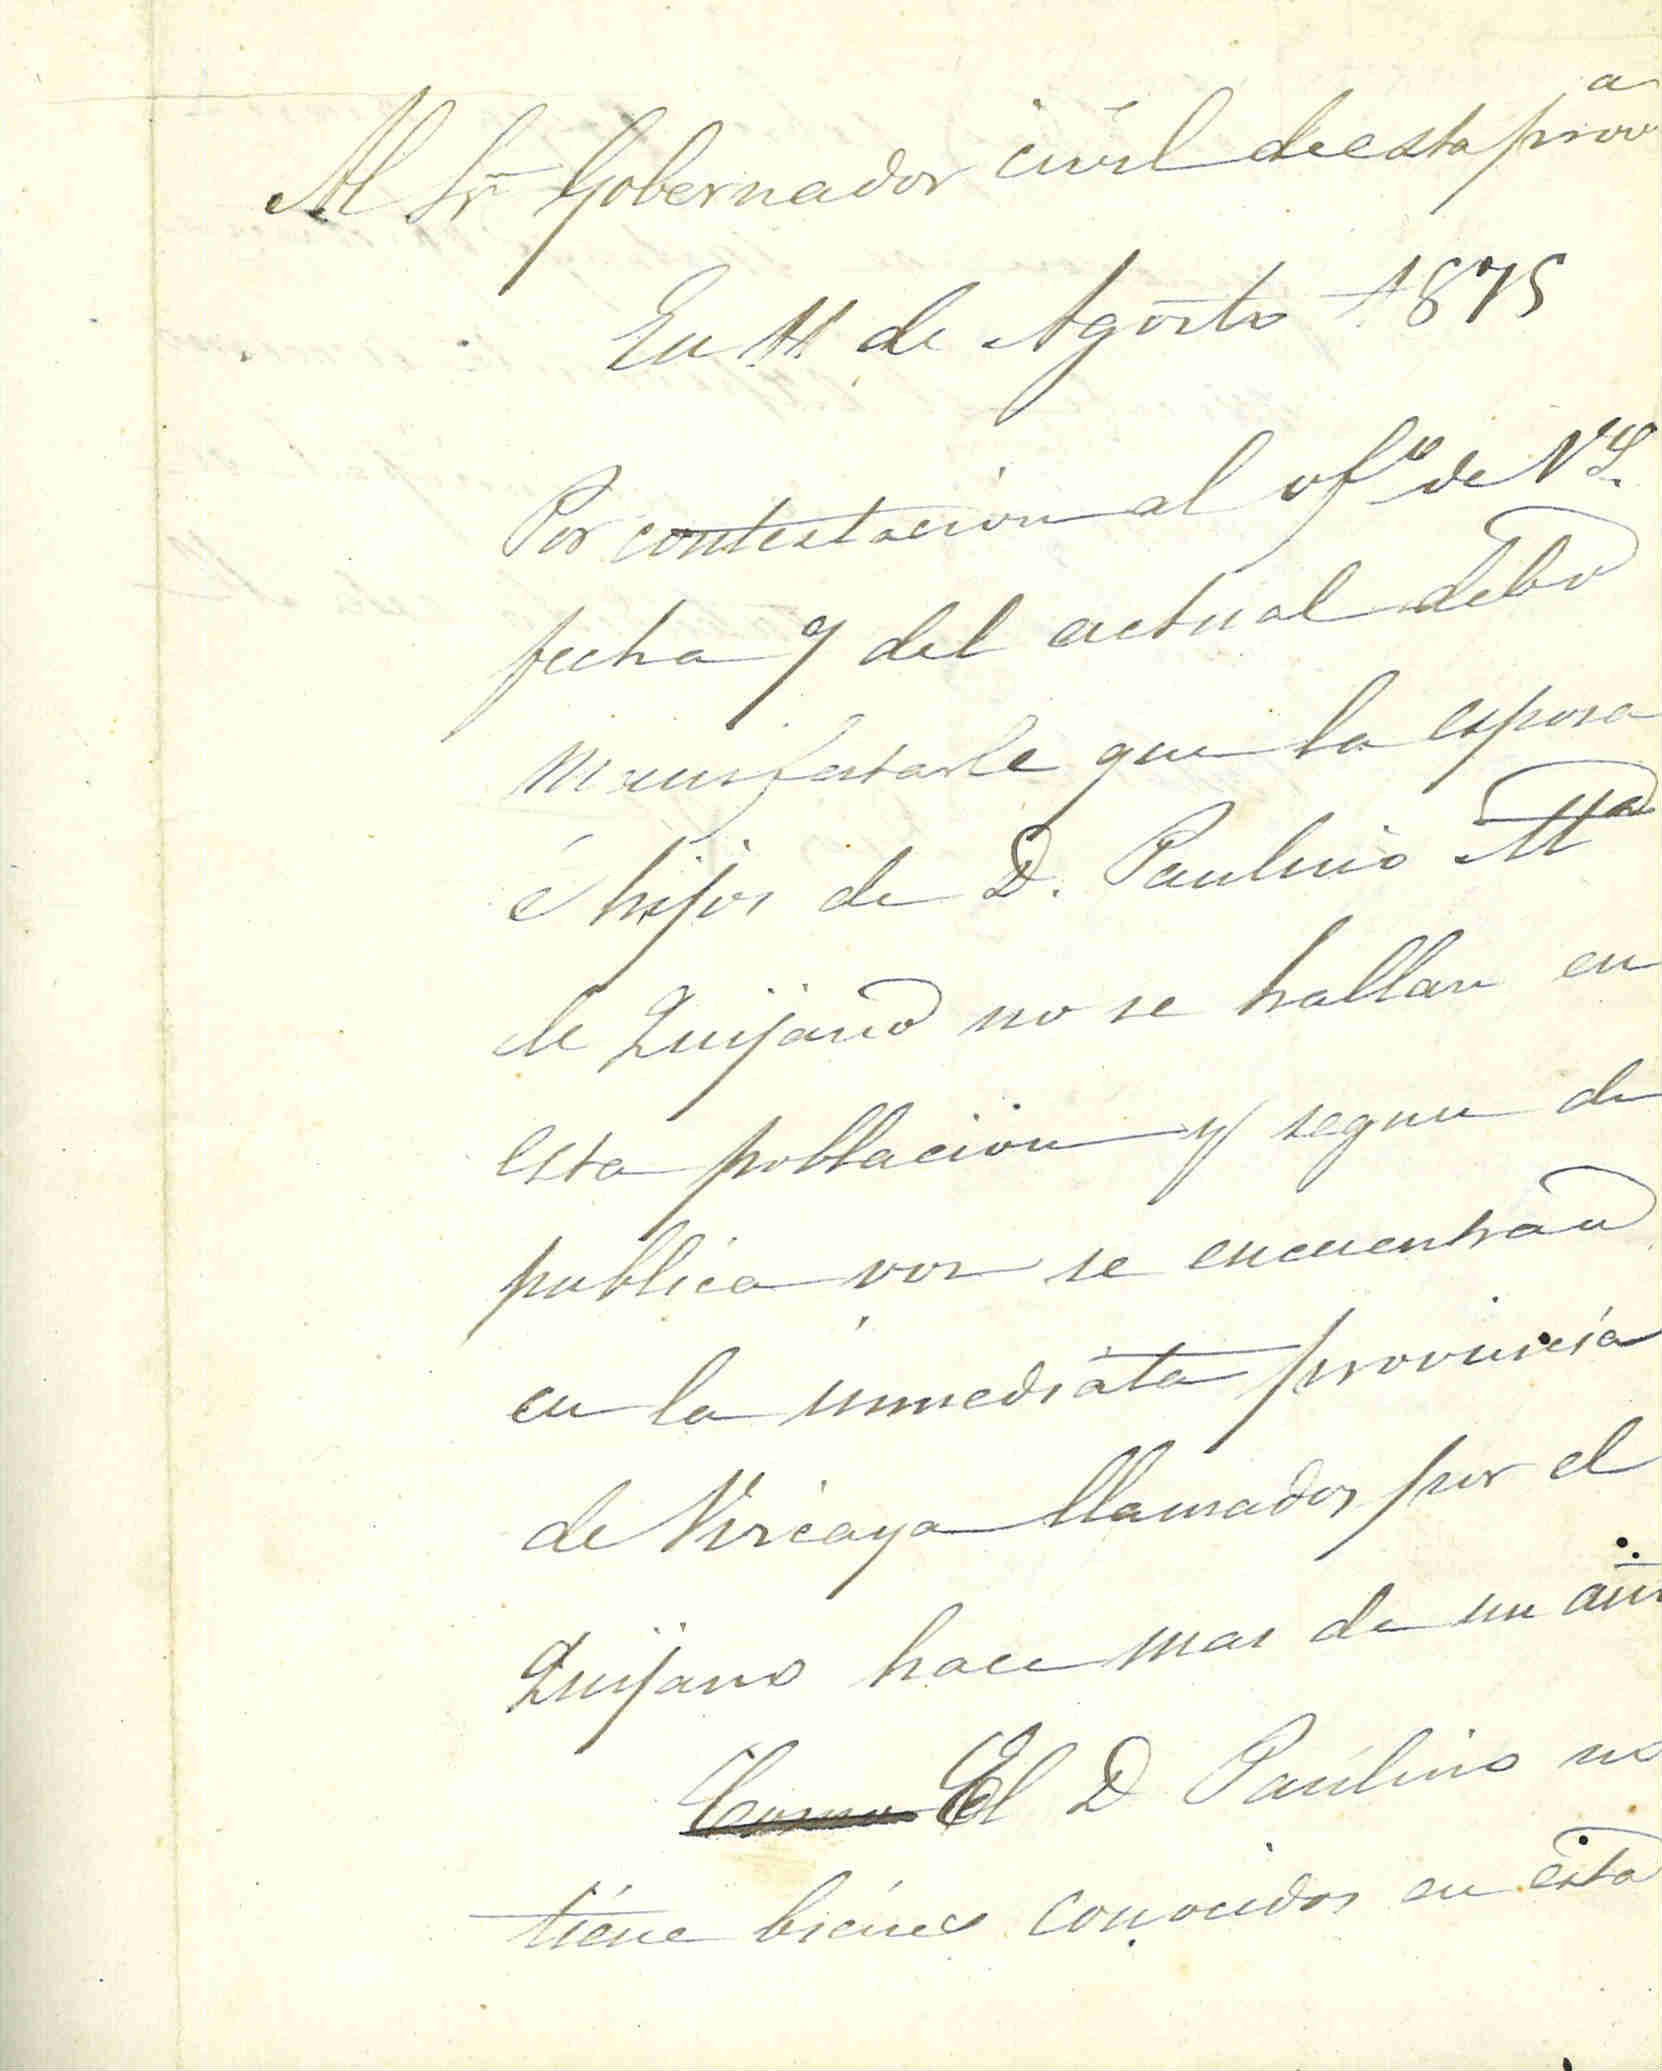 Al Sr Gobernador civil de esta prova
En 11 de Agosto 1875
Por contestacion al ofo de V.S.
fecha 9 del actual debo
manifestarle que la esposa
é hijos de D. Paulino Ma
de Quijano no se hallan en
esta poblacion y segun de
publica vos se encuentran
en la inmediata provincia
de Viscaya llamados por el
Quijano hace mas de un año
Como El D Paulino no
tiene bienes conocidos en esta